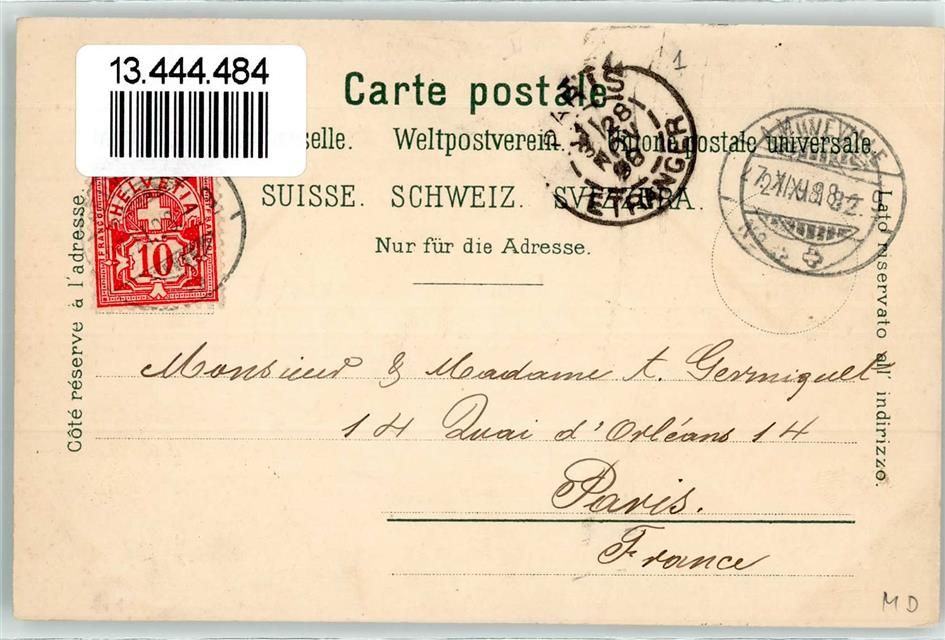 13.444.484
1
Carte postale
selle. Weltpostverein. Unione postale universale.
SUISSE. SCHWEIZ. SVIZZERA.
Nur für die Adresse.
Côté réservé à l'adresse.
Lato riservato all' indirizzo.
HELVETIA
FRANCO
10
ETRANGER
Monsieur & Madame A. Germiquet
14 Quai d'Orléans 14
Paris.
France
MD